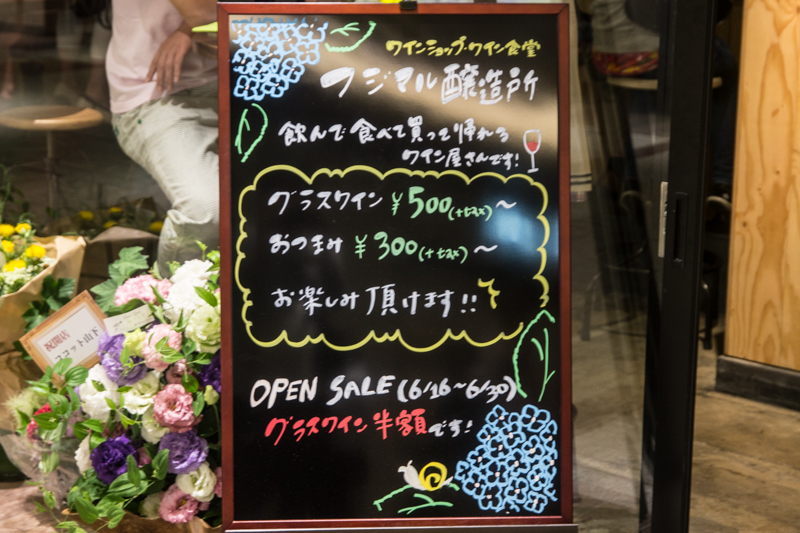 ワインショップ・ワイン食堂
フジマル醸造所
飲んで食べて買って帰れる
ワイン屋さんです!
グラスワイン ¥500(+tax)~
おつまみ ¥300(+tax)~
お楽しみ頂けます!!
OPEN SALE (6/16~6/30)
グラスワイン半額です!
祝開店
ココット山下